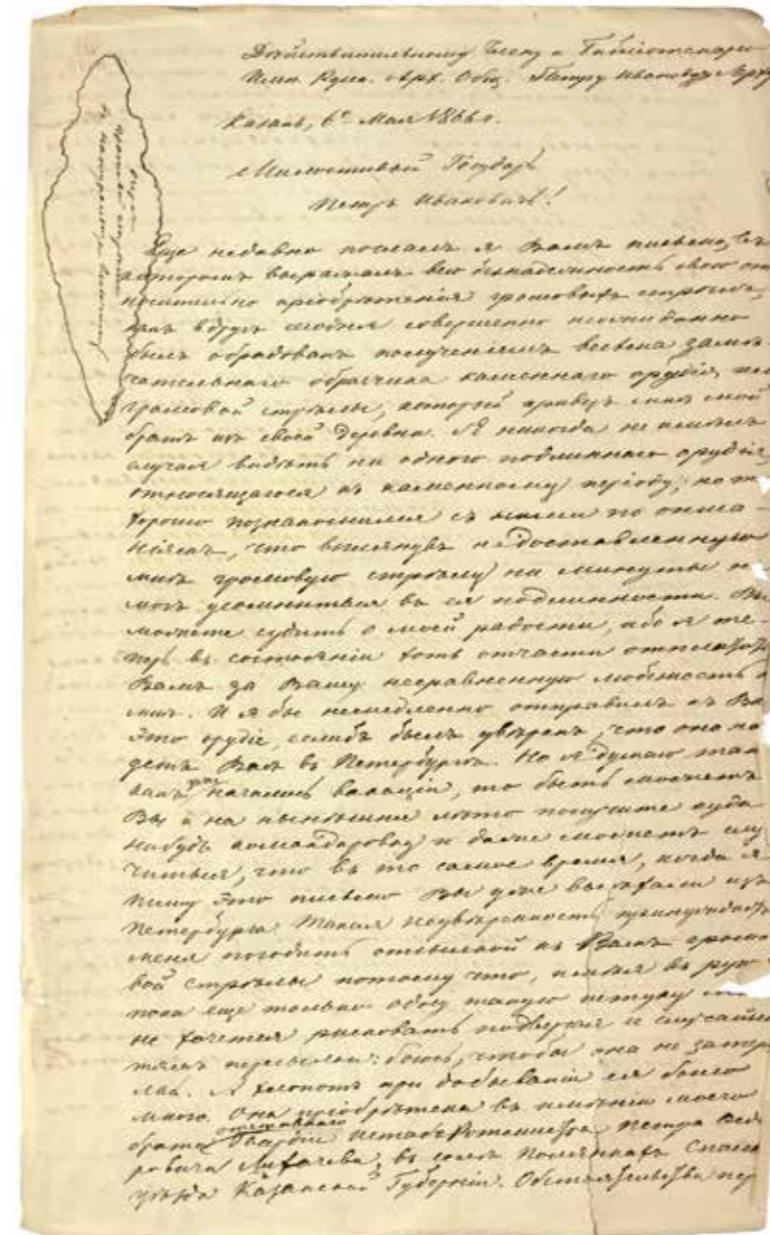 Действительному Члену и Библиотекарю
Имп. Русск. Арх. Общ. Петру Ивановичу Лерху
Казань, 6го Мая 1866 г.
Милостивый Государь
Петръ Ивановичъ!
Еще недавно послалъ я Вамъ письмо, въ
которомъ выражалъ всю безнадежность свою от
носительно пріобрѣтенія громовыхъ стрѣлъ,
какъ вдругъ сегодня совершенно неожиданно
былъ обрадованъ полученіемъ весьма замѣ
чательнаго образчика каменнаго орудія, или
громовой стрѣлы, который привезъ мнѣ мой
братъ изъ своей деревни. Я никогда не имѣлъ
случая видѣть ни одного подлиннаго орудія,
относящагося къ каменному періоду; но т
хорошо познакомился съ ними по описа-
ніямъ, что взглянувъ на доставленную
мнѣ громовую стрѣлу ни минуты не
могъ усомниться въ ея подлинности. Вы
можете судить о моей радости, ибо я те-
перь въ состояніи хоть отчасти отплатить
Вамъ за Вашу несравненную любезность к
мнѣ. И я бы немедленно отправилъ къ Ва
это орудіе, еслибъ былъ увѣренъ, что оно на
детъ Васъ въ Петербургѣ. Но я думаю такъ
какъ уже начались вакаціи, то быть можетъ
Вы и на нынѣшнее лѣто получите куда
нибудь командировку и даже можетъ слу
читься, что въ то самое время, когда я
пишу это письмо Вы уже выѣхали изъ
Петербурга. Такая неувѣренность принуждаетъ
меня погодить отсылкой къ Вамъ громо
вой стрѣлы потому что, имѣя въ рук
пока еще только одну такую штуку
не хочется рисковать подвергая и случайно
тямъ пересылки: боюсь, чтобы она не затер
лась. А хлопотъ при добываніи ея было
много. Она пріобрѣтена въ имѣніи моего
брата отставнаго Гвардіи Штабъ-Ротмистра Петра Ѳедо
ровича Лихачева, въ селѣ Полянкахъ Спасск
уѣзда Казанской Губерніи. Обстоятельства пер